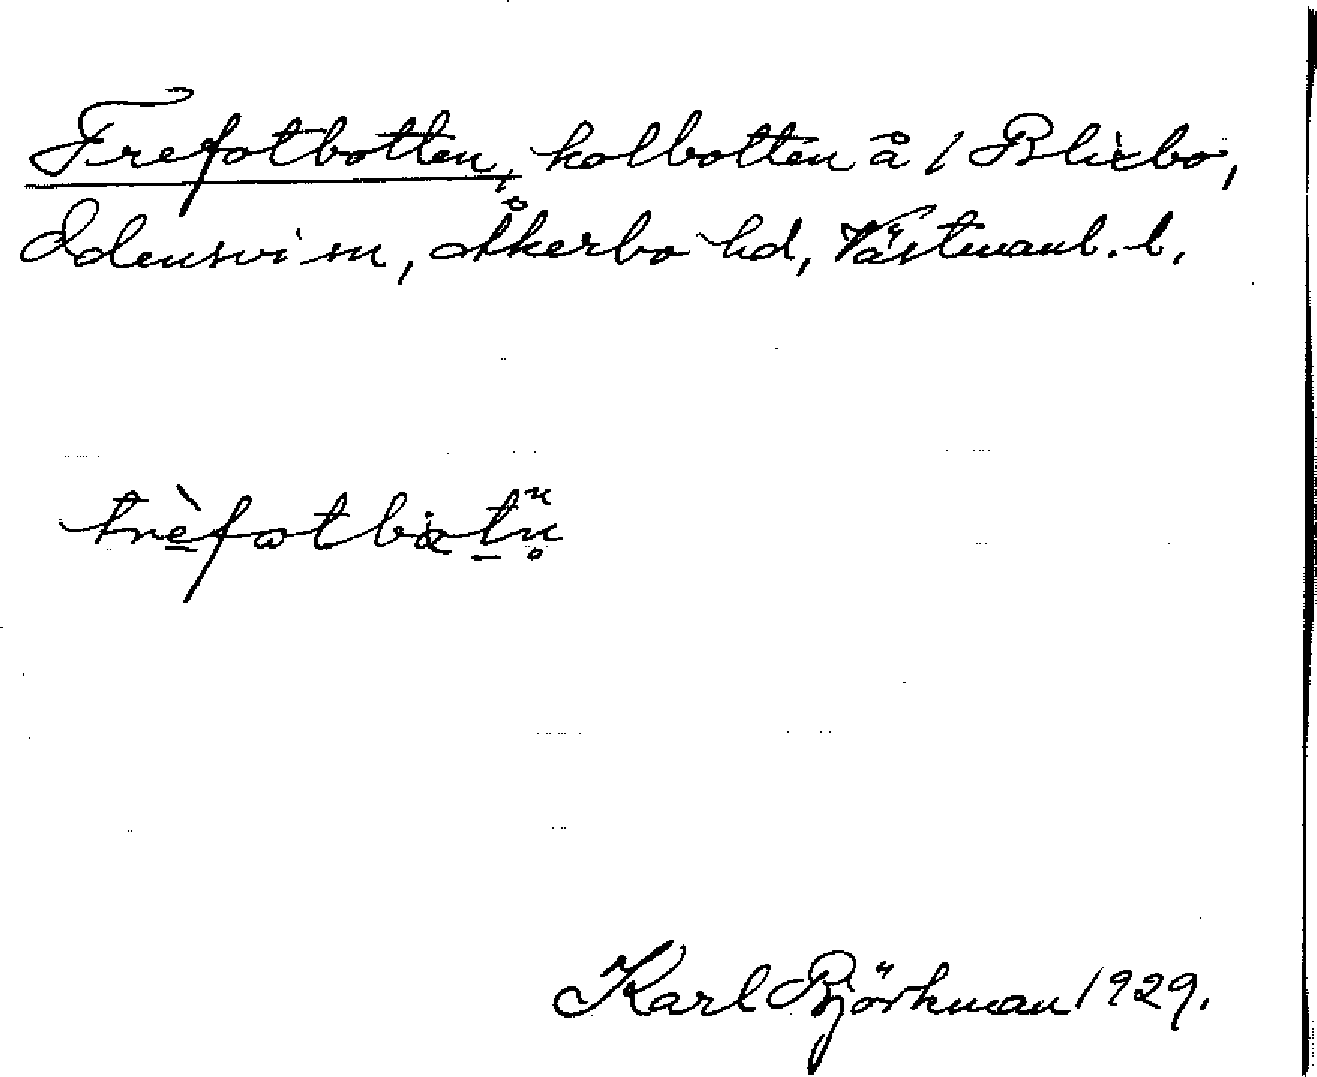 Trefotbotten, kolbotten å 1 Blixbo,
Odensvi sn, Åkerbo hd, Västmanl. l.
trèfωtbωtn̥
Karl Björkman 1929.